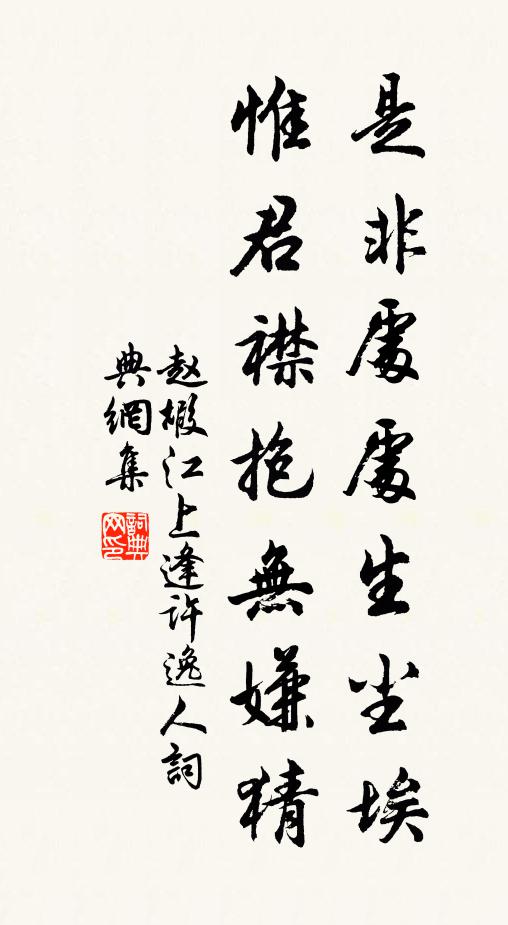 是非處處生尘埃
惟君襟抱無嫌猜
赵嘏江上逢许逸人詞
典網集
詞典
网印